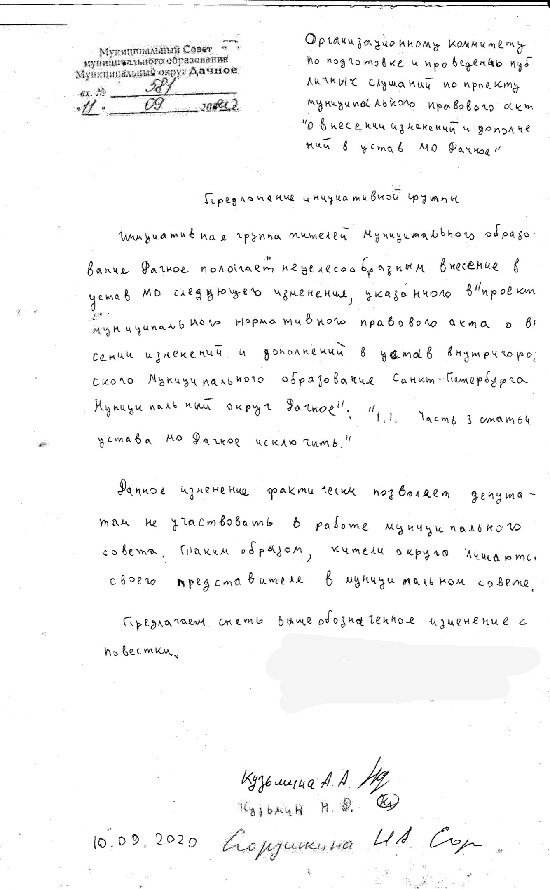 Муниципальный Совет
муниципального образования
Муниципальный округ Дачное
вх. № 581
"11" 09
Организационному комитету
по подготовке и проведению пуб
личных слушаний по проекту
муниципального правового акт
"о внесении изменений и дополне
ний в устав МО Дачное"
Предложение инициативной группы
Инициативная группа жителей муниципального образо-
вание Дачное полагает нецелесообразным внесение в
устав МО следующего изменения, указанного в "проект
муниципального нормативного правового акта о в
сении изменений и дополнений в устав внутригоро
ского Муниципального образования Санкт-Петербурга
Муниципальный округ Дачное": "1.1. Часть 3 статьи
устава МО Дачное исключить."
Данное изменение фактически позволяет депута-
там не участвовать в работе муниципального
совета. Таким образом, жители округа лишаютс
своего представителе в муниципальном совете.
Предлагаем снеть вышеобозначенное изменение с
повестки.
Кузьмина А.А.
Кузьмин И. В.
10.09.2020 И.А.